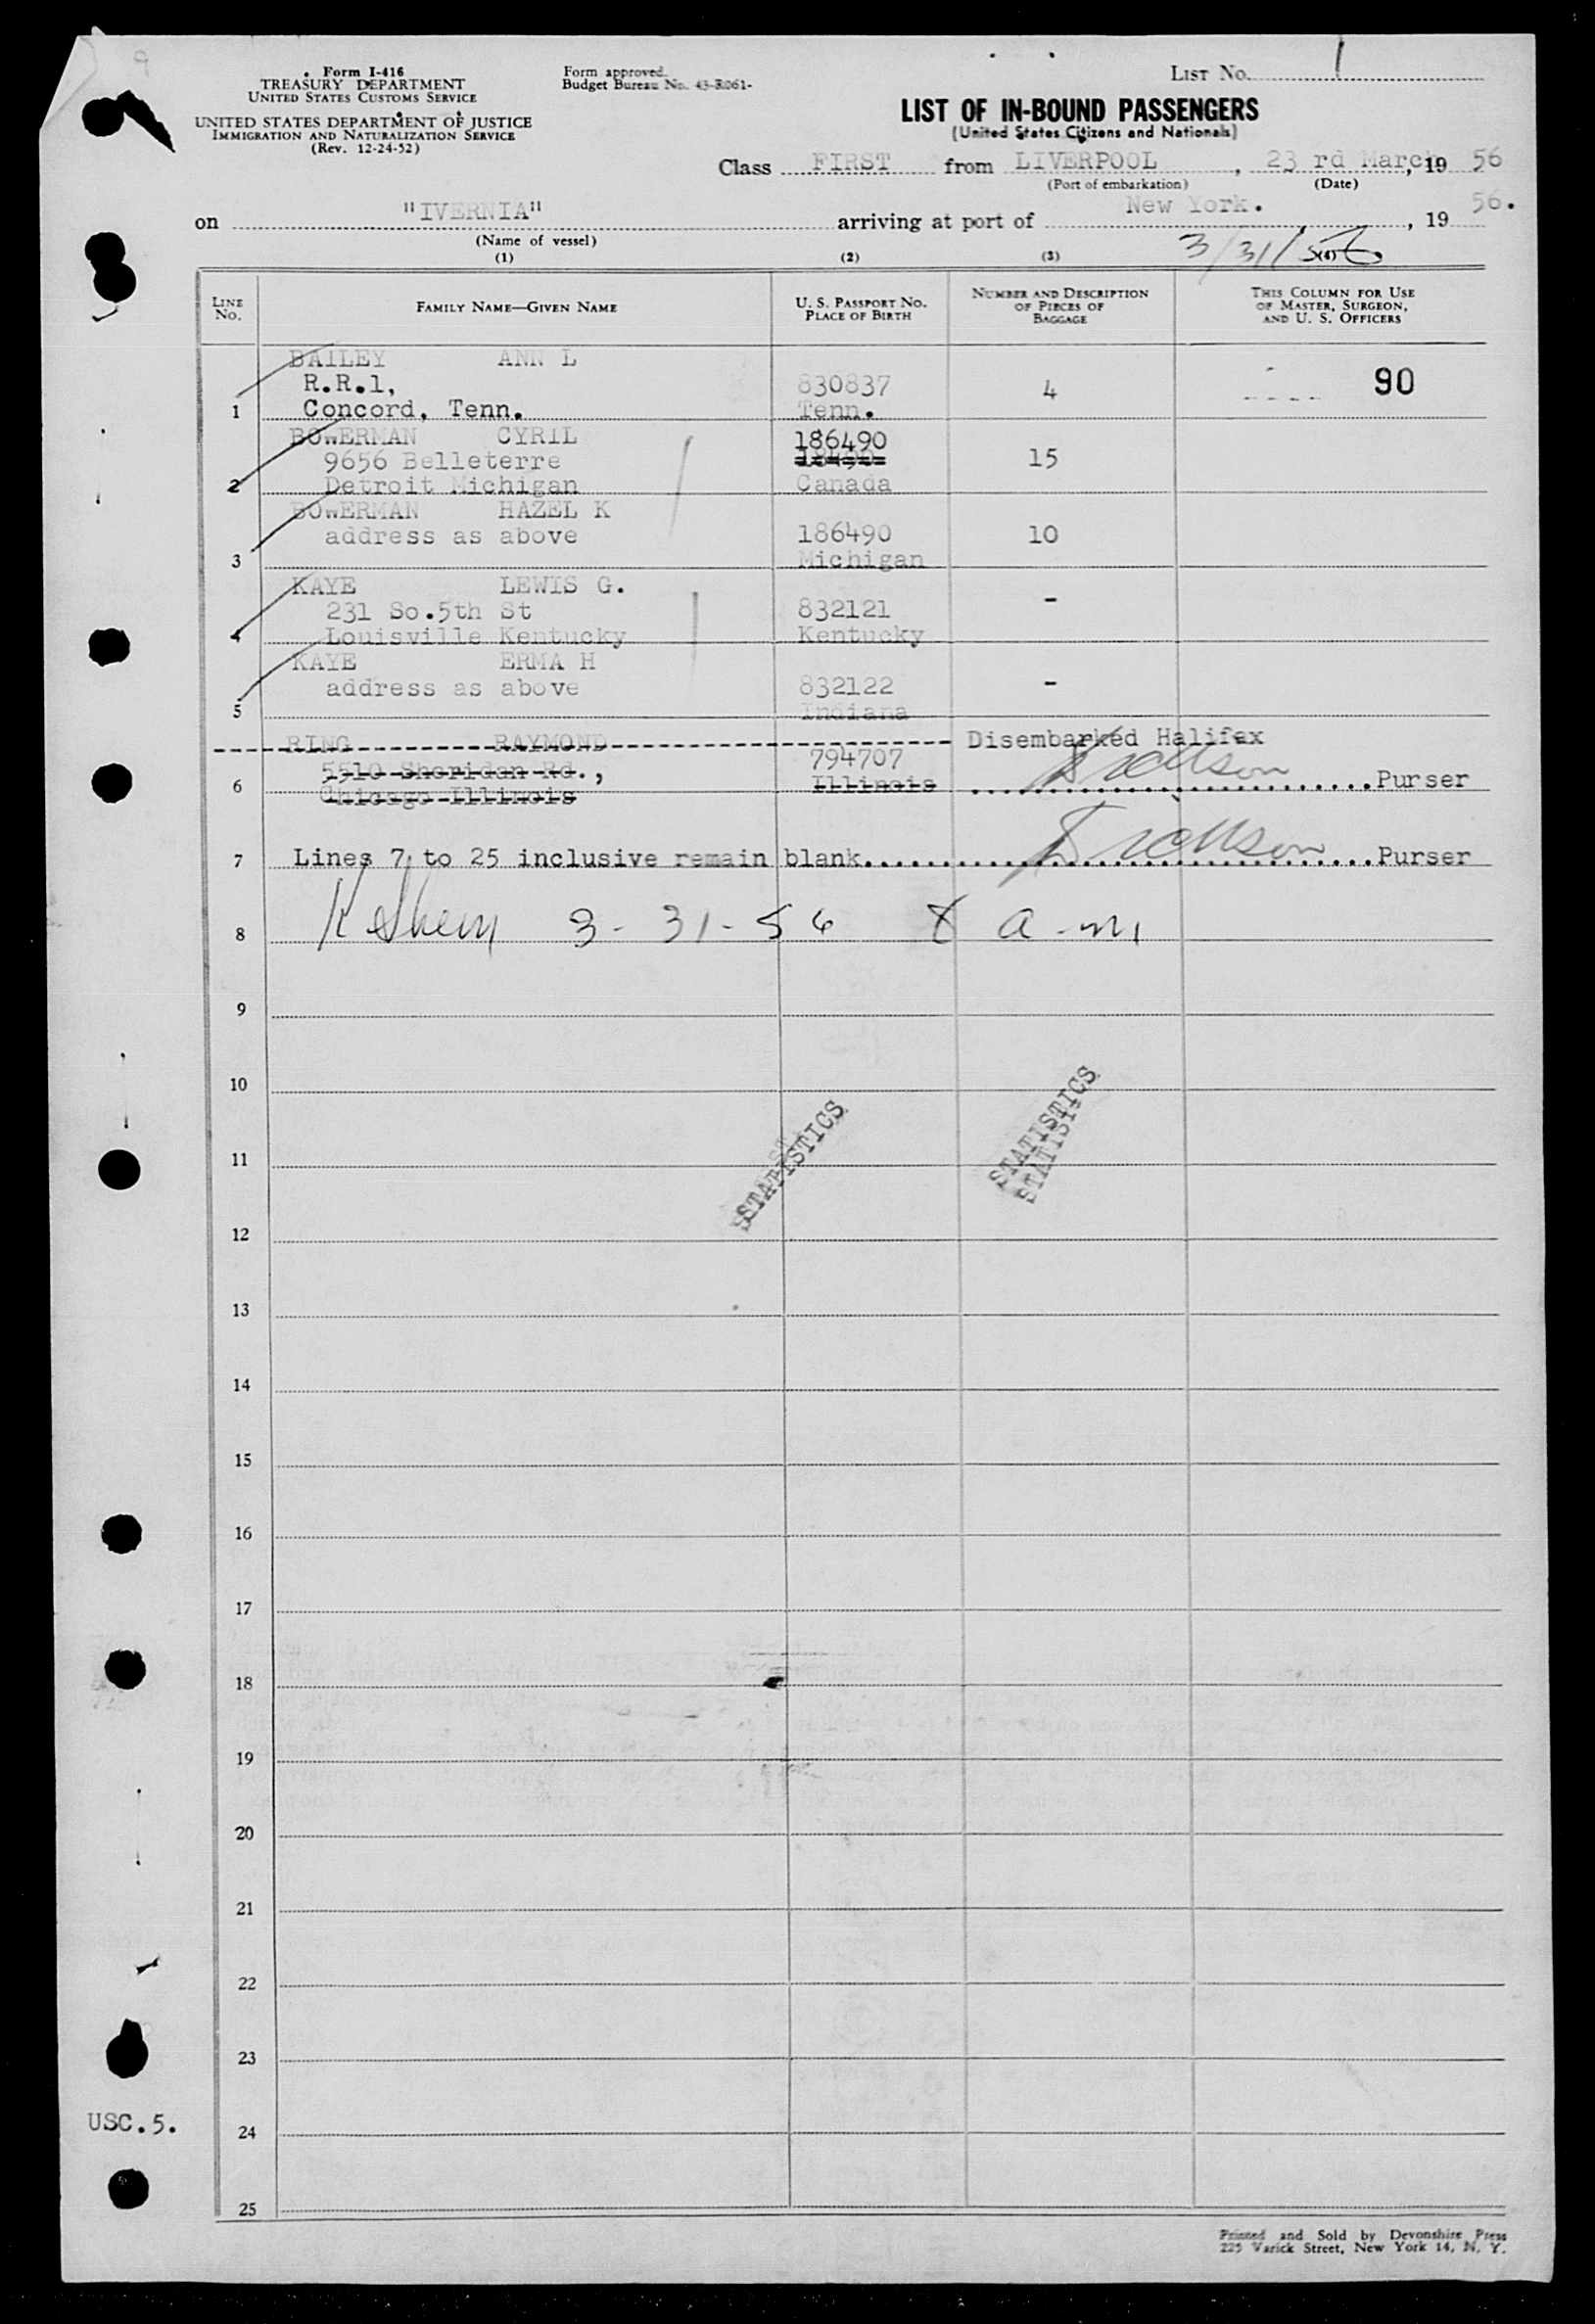 Form I-416
TREASURY DEPARTMENT
UNITED STATES CUSTOMS SERVICE
UNITED STATES DEPARTMENT OF JUSTICE
IMMIGRATION AND NATURALIZATION SERVICE
(Rev. 12-24-52)
Form approved.
Budget Bureau No. 43-R061-
LIST No. 1
LIST OF IN-BOUND PASSENGERS
(United States Citizens and Nationals)
Class FIRST from LIVERPOOL, 23 rd March, 19 56
(Port of embarkation) (Date)
on "IVERNIA" arriving at port of New York. , 19 56.
(Name of vessel)
3/31/56
(1) (2) (3) (4)
LINE No.
FAMILY NAME—GIVEN NAME
U. S. PASSPORT NO.
PLACE OF BIRTH
NUMBER AND DESCRIPTION
OF PIECES OF
BAGGAGE
THIS COLUMN FOR USE
OF MASTER, SURGEON,
AND U. S. OFFICERS
BAILEY ANN L
R.R.1, 830837 4 90
1 Concord, Tenn. Tenn.
BOWERMAN CYRIL 186490
9656 Belleterre 15
2 Detroit Michigan Canada
BOWERMAN HAZEL K
address as above 186490 10
3 Michigan
KAYE LEWIS G.
231 So.5th St 832121 -
4 Louisville Kentucky Kentucky
KAYE ERMA H
address as above 832122 -
5 Indiana
RING RAYMOND Disembarked Halifax
5510 Sheridan Rd., 794707
6 Chicago Illinois Illinois Purser
7 Lines 7 to 25 inclusive remain blank. Purser
8 3-31-56 8 a.m.
9
10
11
STATISTICS
STATISTICS
STATISTI
12
13
14
15
16
17
18
19
20
21
22
23
USC.5.
24
25
Printed and Sold by Devonshire Press
225 Varick Street, New York 14, N. Y.